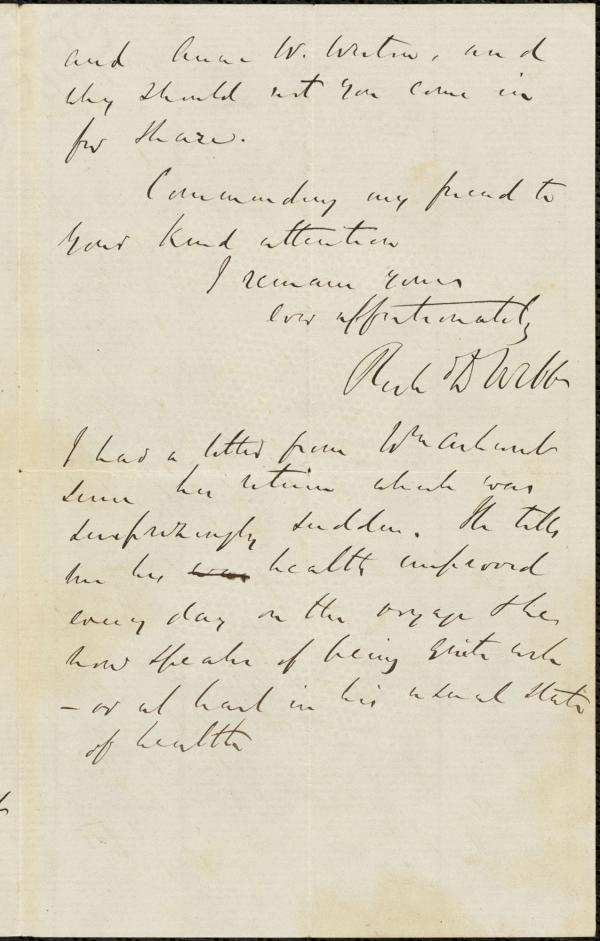 and Anne W. Weston, and
why should not you come in
for share.
Commending my friend to
your kind attention
I remain yours
ever affectionately
Rich D Webb
I had a letter from Wm
since his return which was
surprizingly sudden. He tells
me his health improved
every day on the voyage &
now speaks of being quite well
- or at least in his usual state
of health